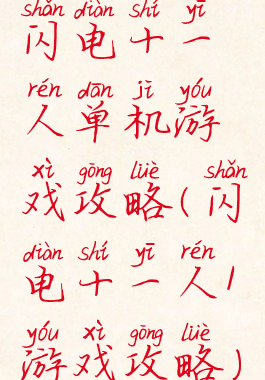 shǎn diàn shí yī
闪电十一
rén dān jī yóu
人单机游
xì gōng lüè shǎn
戏攻略(闪
diàn shí yī rén
电十一人/
yóu xì gōng lüè
游戏攻略)